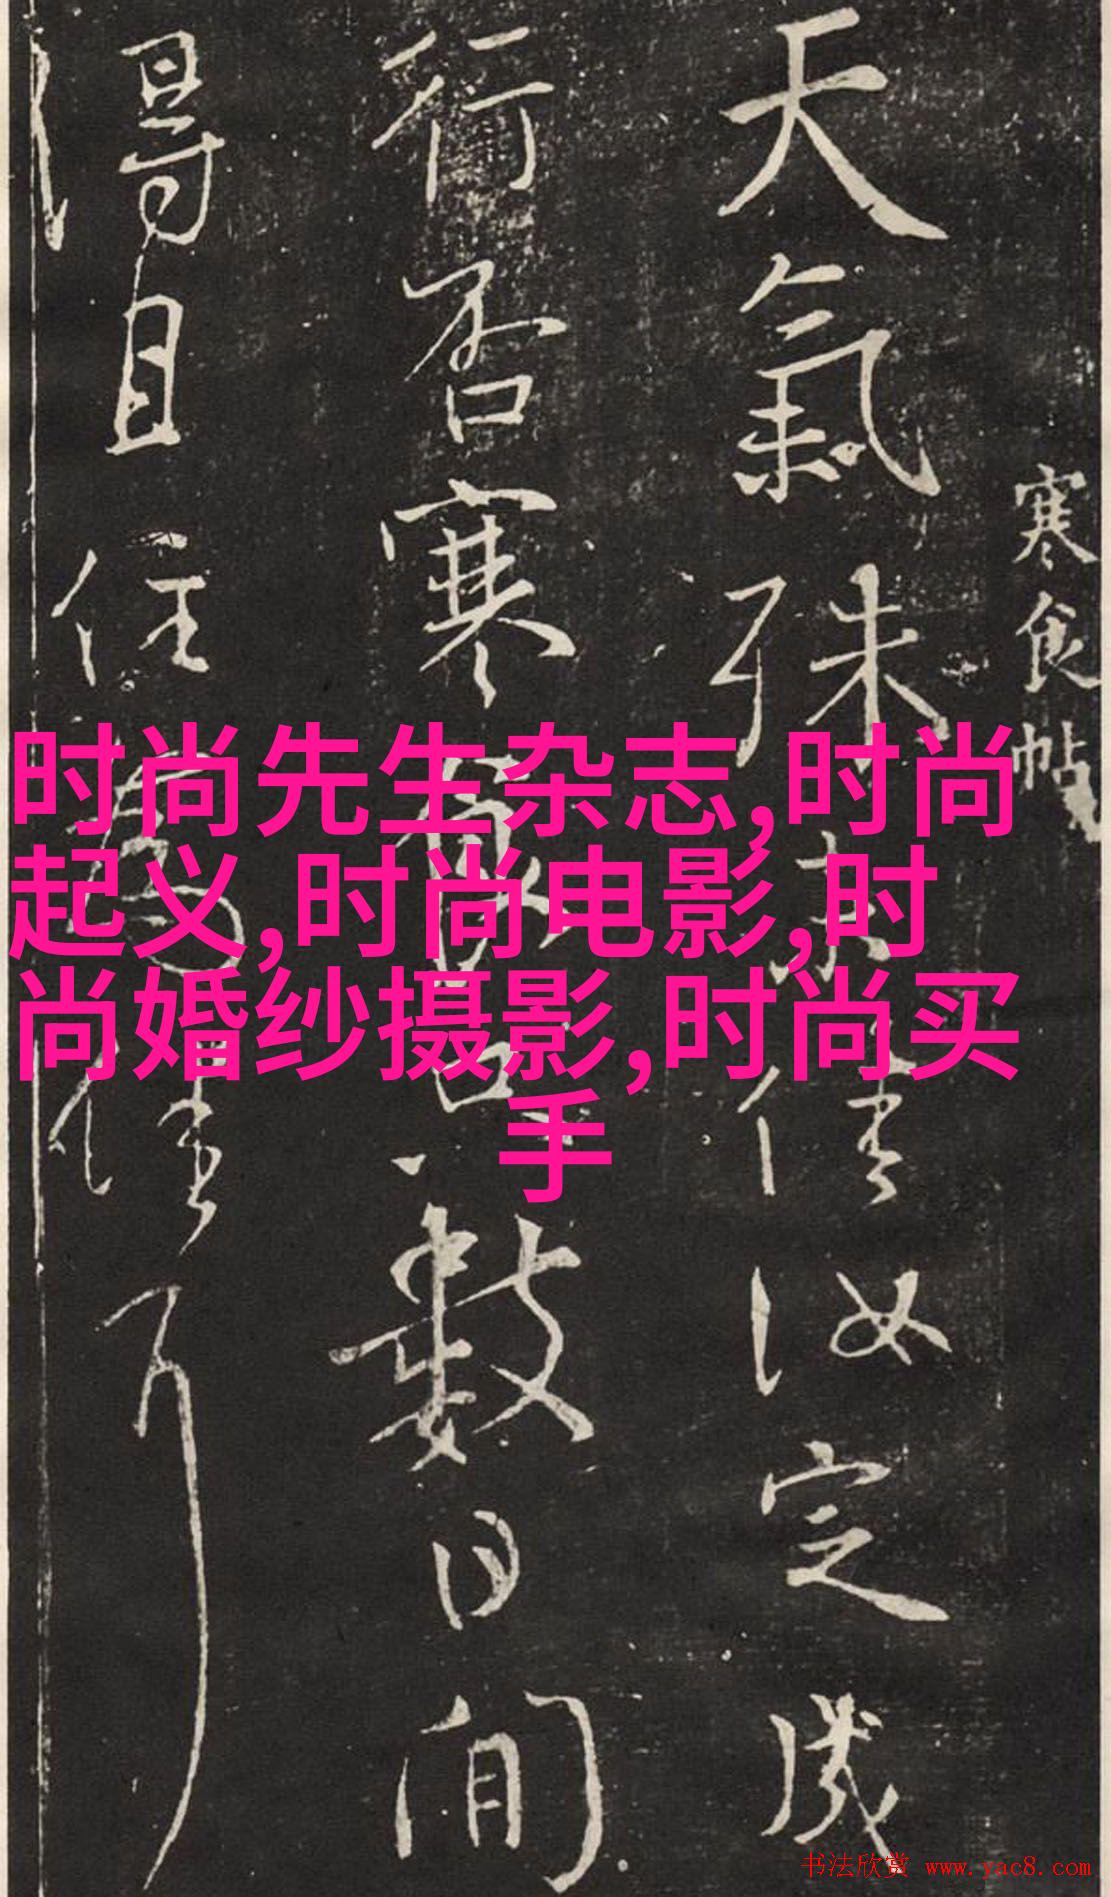 寒食帖
天氣殊未佳汝定成
行否寒食只數日間
得且住為佳耳
时尚先生杂志,时尚
起义,时尚电影,时
尚婚纱摄影,时尚买
手
书法欣赏 www.yac8.com